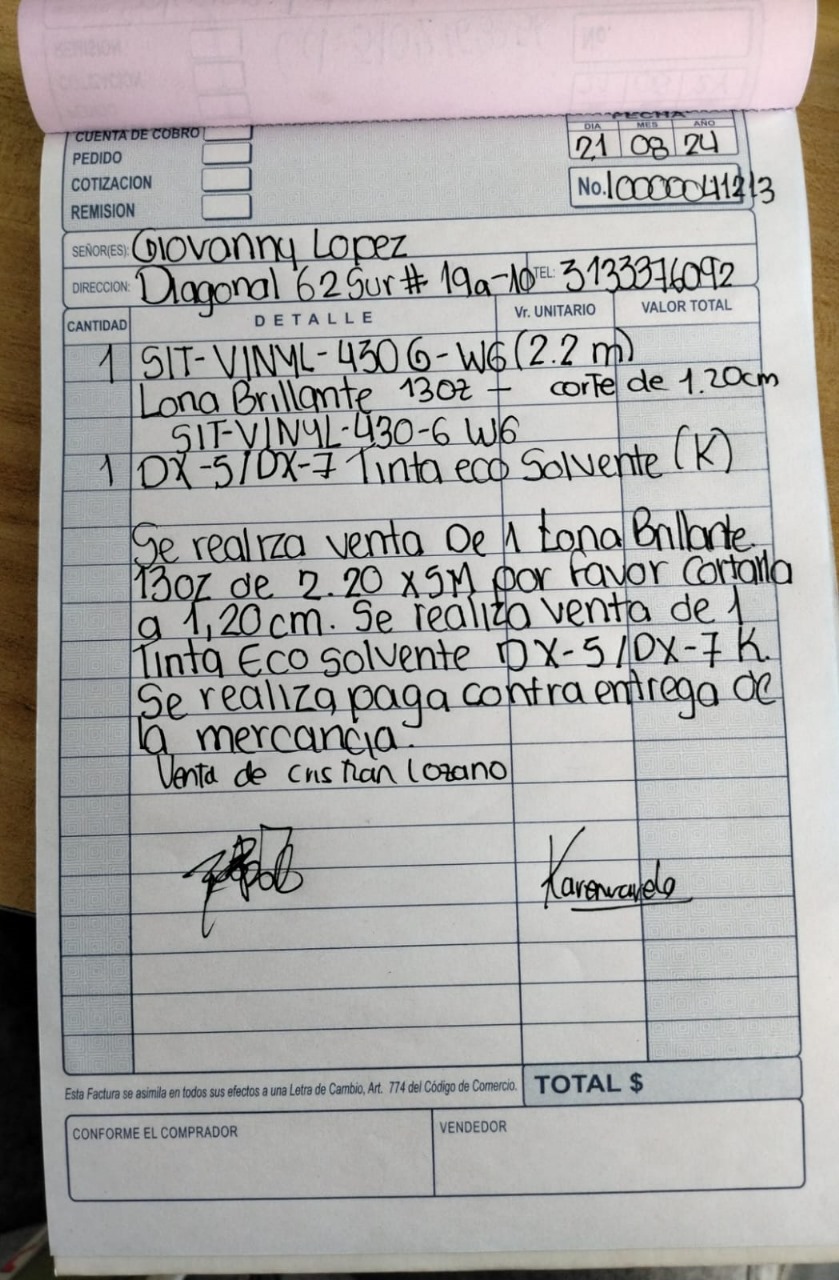 CUENTA DE COBRO
PEDIDO
COTIZACION
REMISION
FECHA
DIA MES AÑO
21 08 24
No. 10000041213
SEÑOR(ES): Giovanny Lopez
DIRECCION: Diagonal 62 Sur # 19a-10 TEL: 3133376092
CANTIDAD DETALLE Vr. UNITARIO VALOR TOTAL
1 SIT-VINYL-430G-W6 (2.2 m)
Lona Brillante 13oz - corte de 1.20cm
SIT-VINYL-430-6 W6
1 DX-5/DX-7 Tinta eco Solvente (K)
Se realiza venta De 1 Lona Brillante.
13oz de 2.20 x 5M por favor Cortarla
a 1,20 cm. Se realiza venta de 1
Tinta Eco solvente DX-5/DX-7 K.
Se realiza paga contra entrega de
la mercancia.
Venta de cristian lozano
Esta Factura se asimila en todos sus efectos a una Letra de Cambio, Art. 774 del Código de Comercio.
TOTAL $
CONFORME EL COMPRADOR
VENDEDOR